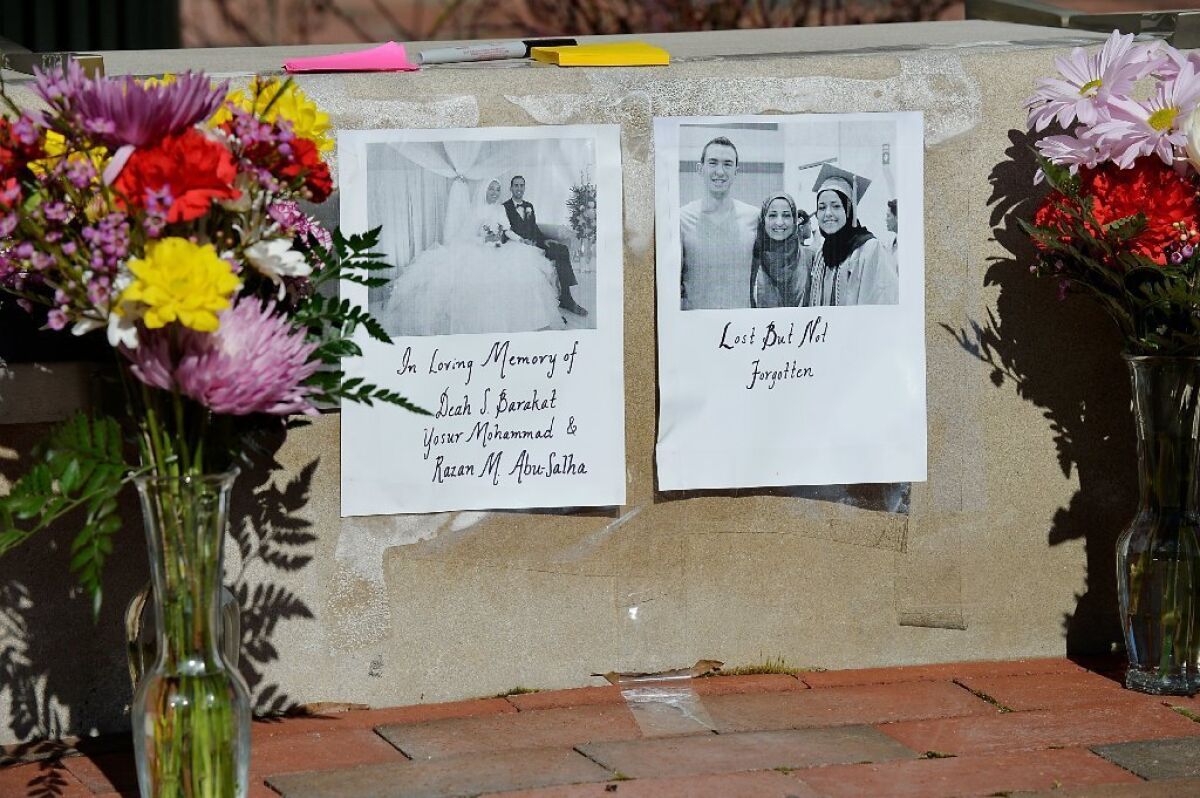 In Loving Memory of
Deah S. Barakat
Yosur Mohammad &
Razan M. Abu-Salha
Lost But Not
Forgotten